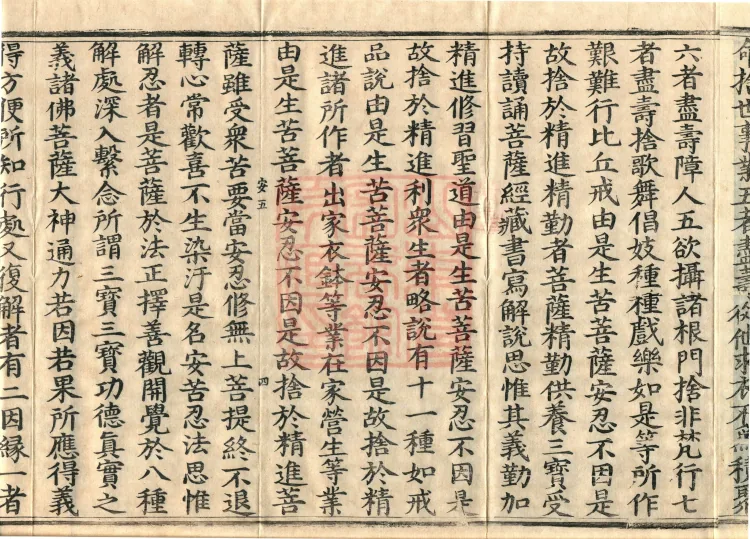 命捨世事業五者盡壽從他求衣不爲積聚
六者盡壽障人五欲攝諸根門捨非梵行七
者盡壽捨歌舞倡妓種種戲樂如是等所作
艱難行比丘戒由是生苦菩薩安忍不因是
故捨於精進精勤者菩薩精勤供養三寶受
持讀誦菩薩經藏書寫解說思惟其義勤加
精進修習聖道由是生苦菩薩安忍不因是
故捨於精進利衆生者略說有十一種如戒
品說由是生苦菩薩安忍不因是故捨於精
進諸所作者出家衣鉢等業在家營生等業
由是生苦菩薩安忍不因是故捨於精進菩
安五 四
薩雖受衆苦要當安忍修無上菩提終不退
轉心常歡喜不生染汙是名安苦忍法思惟
解忍者是菩薩於法正擇善觀開覺於八種
解處深入繫念所謂三寶三寶功德眞實之
義諸佛菩薩大神通力若因若果所應得義
得方便所知行處又復解者有二因緣一者